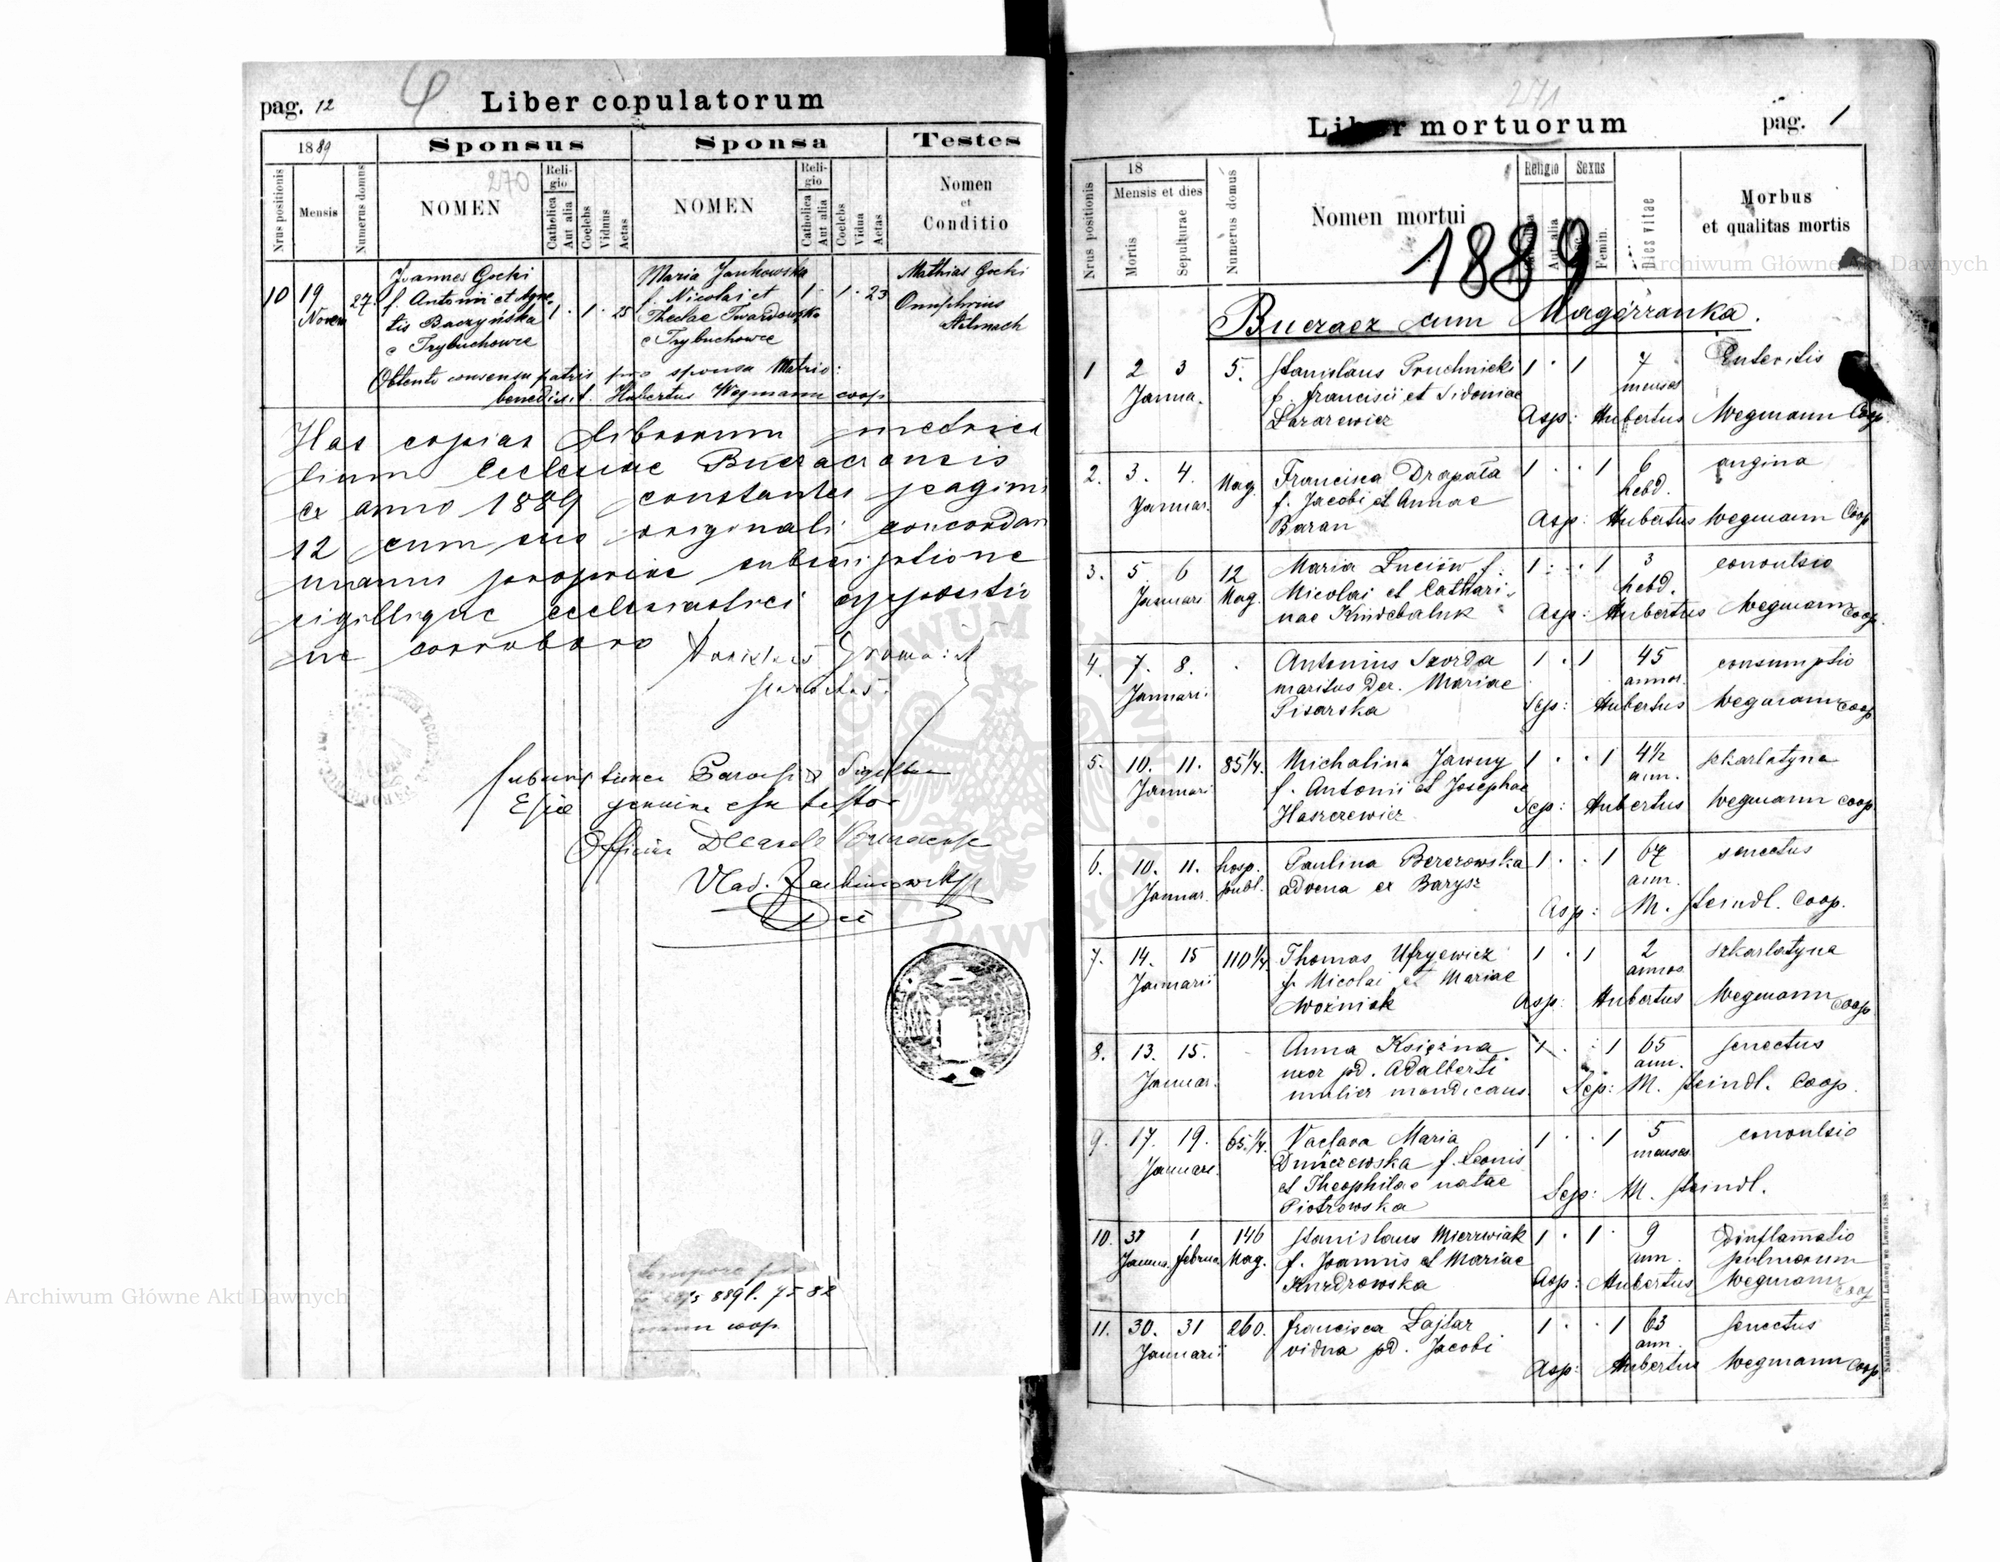 pag. 12
Liber copulatorum
1889 Sponsus Sponsa Testes
270
Nrus positionis
Mensis
Numerus domus
NOMEN
Religio
Catholica
Aut alia
Coelebs
Viduus
Aetas
NOMEN
Religio
Catholica
Aut alia
Coelebs
Vidua
Aetas
Nomen
et
Conditio
10 19 Novem 27.
Joannes Gocki
f. Antonii et Agne-
tis Baczyńska
e Trybuchowce
1 . 1 . 25
Maria Jankowska
f. Nicolai et
Theclae Twardowska
e Trybuchowce
1 . 1 . 23
Mathias Gocki
Onuphrius
Stelmach
Obtento consensu patris pro sponsa Matrim:
benedixit. Hubertus Wegmann coop
Has copias librorum metrica
lium Ecclesiae Buczacensis
ex anno 1889 constantes paginis
12 cum suo originali concordan
manus propriae subscriptione
sigillique ecclesiastici appositio
ne corroboro
Stanislaus Gromnicki
parochus.
Subscriptionem Parochi & Sigillum
Eccl genuina esse testor
Officium Decanale Buczacense
Vlad.
Dec
tempore
889 l. 75 82
mann coop.
271
Liber mortuorum
pag. 1
18
Nrus positionis
Mensis et dies
Mortis
Sepulturae
Numerus domus
Nomen mortui
Religio
Aut alia
Sexus
Femin.
Dies vitae
Morbus
et qualitas mortis
1889
Buczacz cum Magórzanka.
1 2 3 Janua. 5.
Stanislaus Pruchnicki
f. Francisci et Sidoniae
Lazarewicz
1 . 1 7 menses Enteritis
Asp: Hubertus Wegmann Coop
2. 3. 4. Januar. Mag.
Francisca Drapała
f. Jacobi et Annae
Baran
1 . . 1 6 hebd. angina
Asp: Hubertus Wegmann Coop
3. 5 6 Januari 12 Mag.
Maria Luciów f.
Nicolai et Cathari-
nae Kindebaluk
1 . . 1 3 hebd. convulsio
Asp: Hubertus Wegmann Coop.
4. 7. 8. Januari.
Antonius Szorda
maritus der. Mariae
Pisarska
1 . 1 45 annos. consumptio
Sep: Hubertus Wegmann coop
5. 10. 11. Januari 85 1/4.
Michalina Jawny
f. Antonii et Josephae
Haszczewicz
1 . . 1 4 1/2 ann. szkarlatyna
Sep: Hubertus Wegmann coop
6. 10. 11. Januar. hosp. publ.
Paulina Berezowska
advena ex Barysz
1 . . 1 67 ann. senectus
Asp: M. Steindl. Coop.
7. 14. 15 Januarii 110 1/4
Thomas Ufryewicz
f. Nicolai et Mariae
Woźniak
1 . 1 2 annos szkarlatyna
Asp: Hubertus Wegmann coop
8. 13. 15. Januar.
Anna Księżna
uxor pd. Adalberti
mulier mendicans.
1 . . 1 65 ann. senectus
Sep: M. Steindl. Coop.
9. 17. 19. Januari. 65 1/4.
Vaclava Maria
Dniczewska f. Leonis
et Theophilae natae
Piotrowska
1 . . 1 5 menses convulsio
Sep: M. Steindl.
10. 31 Janua. 1 Februa. 146 Mag.
Stanislaus Mierzwiak
f. Joannis et Mariae
Kuzdrowska
1 . 1 . 9 ann. Inflamatio
pulmonum
Asp: Hubertus Wegmann coop
11. 30. 31 Januarii 260.
Francisca Lajtar
vidua pd. Jacobi
1 . . 1 63 ann. senectus
Asp: Hubertus Wegmann coop
Nakładem Drukarni Ludowej we Lwowie. 1888.
Archiwum Główne Akt Dawnych
Archiwum Główne Akt Dawnych
ARCHIWUM GŁÓWNE AKT DAWNYCH